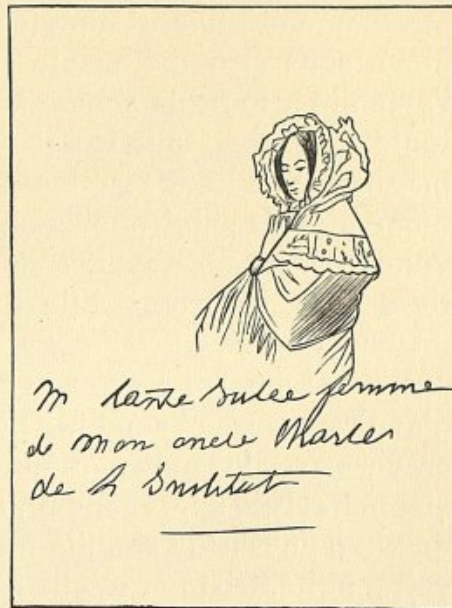 M tante Julee femme
de mon oncle Charles
de l Institut